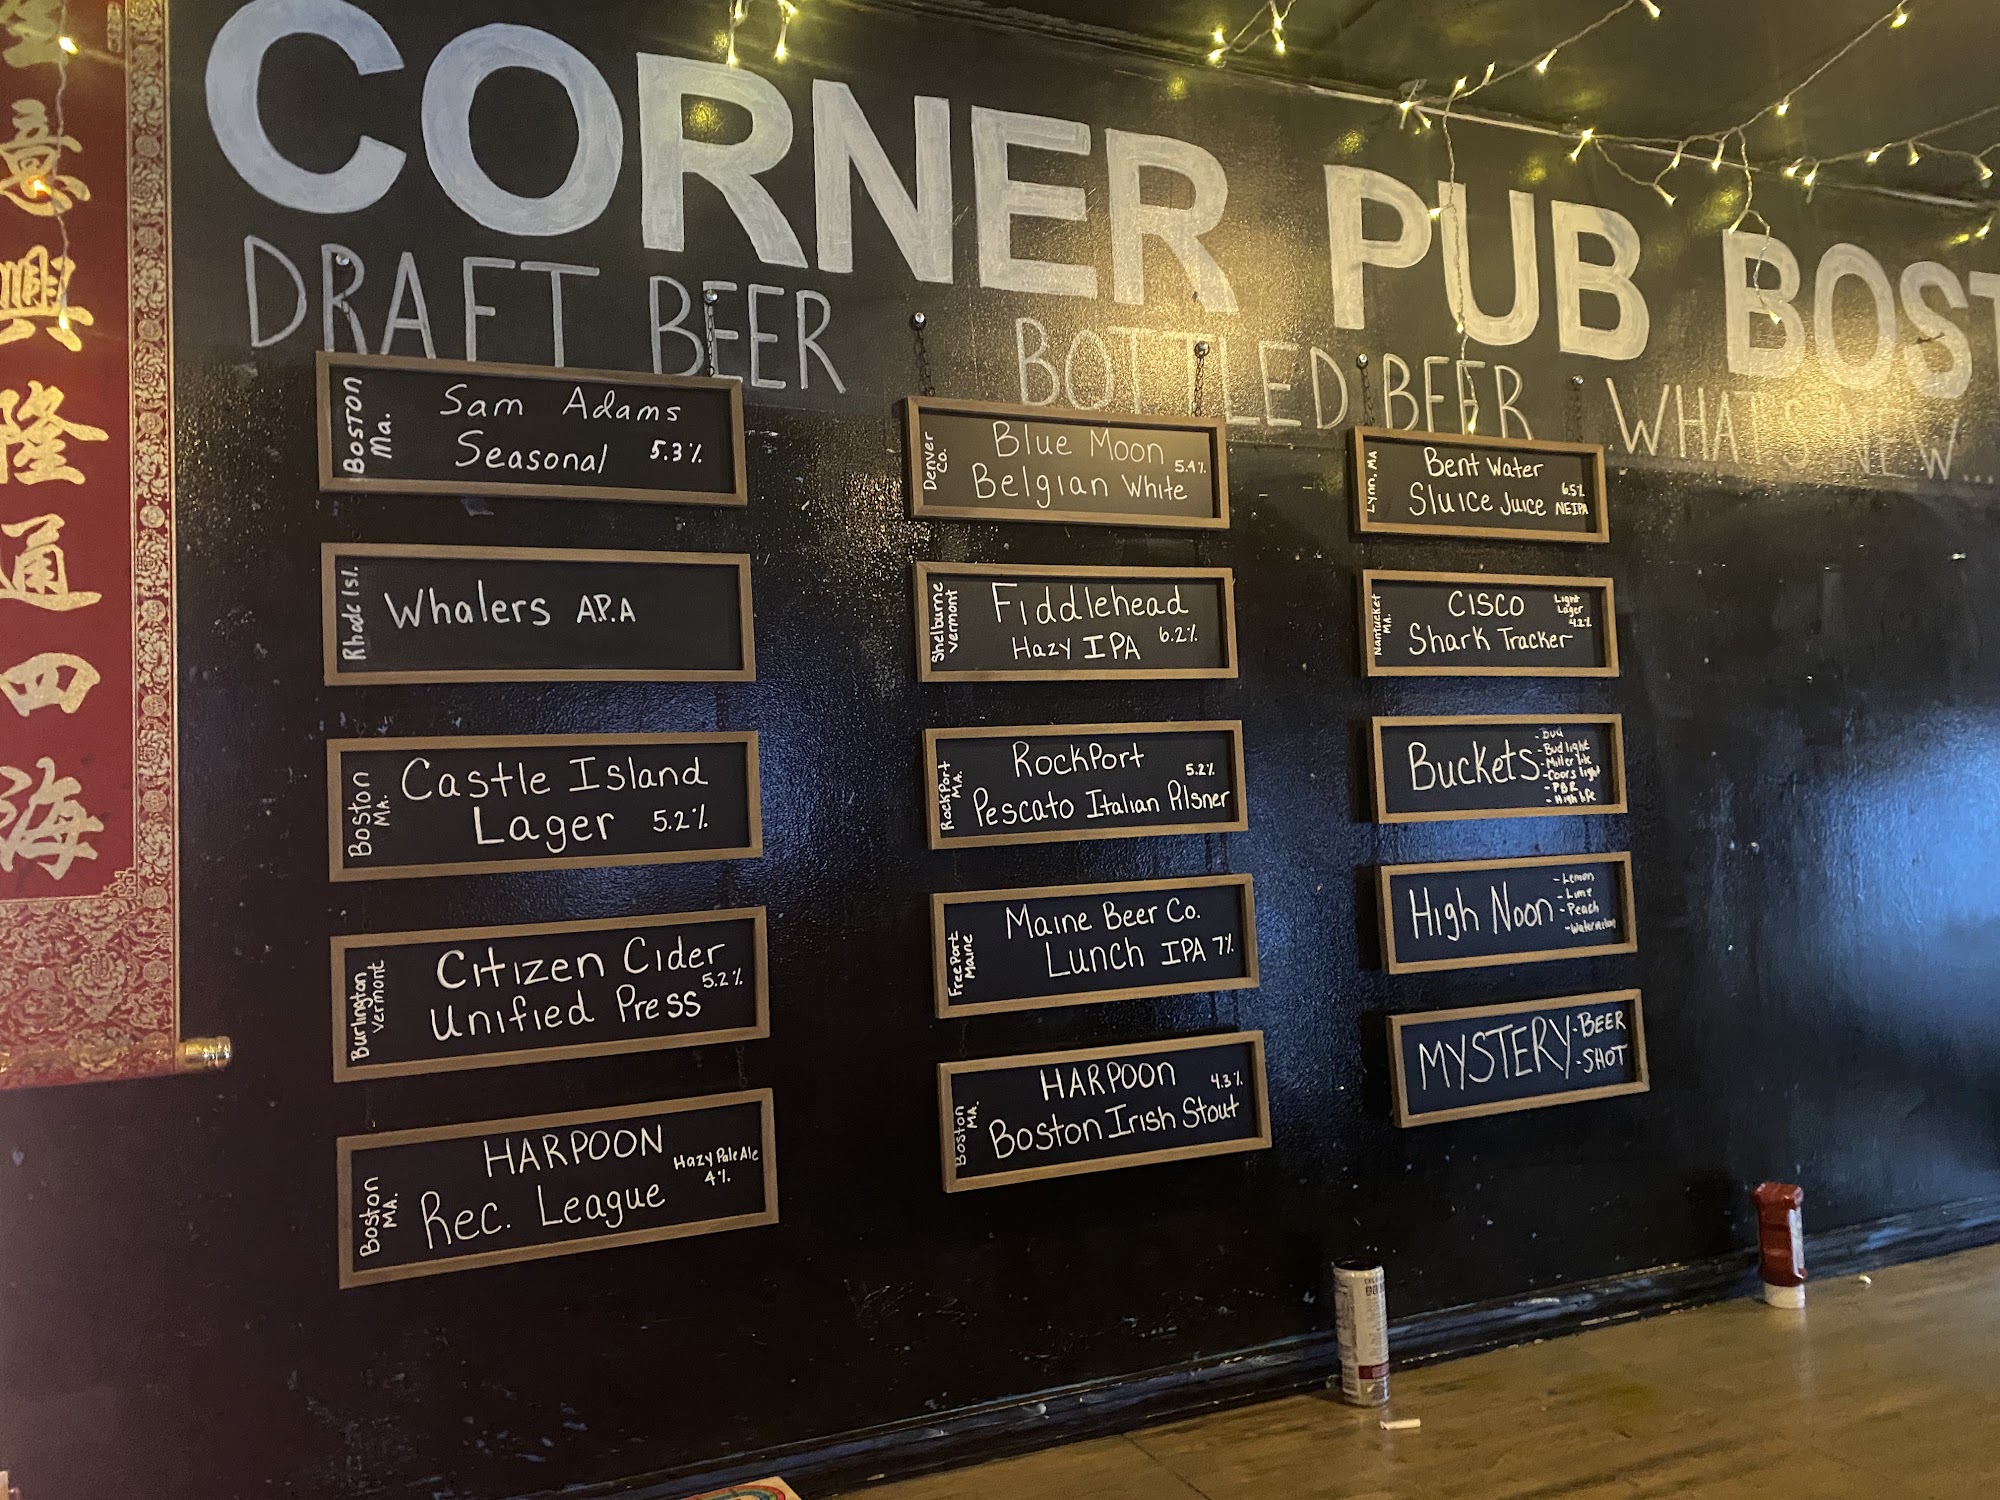 CORNER PUB BOST
DRAFT BEER
BOSTON
Ma.
Sam Adams
Seasonal 5.3%
Rhode Isl.
Whalers A.P.A
Boston
MA.
Castle Island
Lager 5.2%
Burlington
Vermont
Citizen Cider
Unified Press 5.2%
Boston
MA.
HARPOON
Rec. League
Hazy Pale Ale
4%
BOTTLED BEER
Denver
Co.
Blue Moon
Belgian White
5.4%
Shelburne
Vermont
Fiddlehead
Hazy IPA 6.2%
Rockport
MA.
Rockport 5.2%
Pescato Italian Pilsner
Freeport
Maine
Maine Beer Co.
Lunch IPA 7%
Boston
MA.
HARPOON 4.3%
Boston Irish Stout
Lynn, MA
Bent Water
Sluice Juice
6.5%
NEIPA
Nantucket
MA.
CISCO
Shark Tracker
Light
Lager
4.2%
Buckets
- Bud
- Bud light
- Miller lite
- Coors light
- PBR
- High life
High Noon
- Lemon
- Lime
- Peach
- Watermelon
MYSTERY
- BEER
- SHOT
WHATS NEW...
意
興
隆
通
四
海